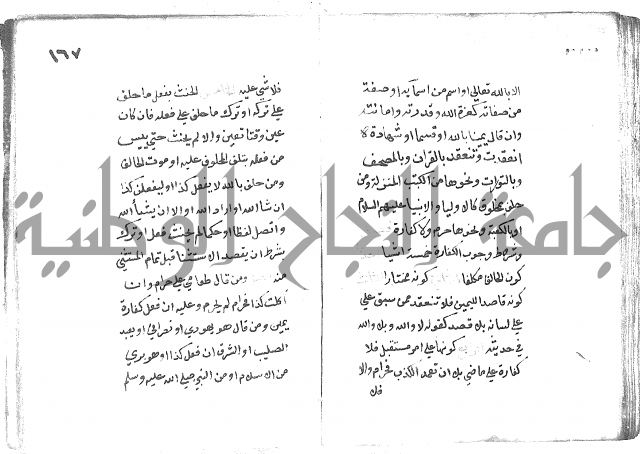 الا بالله تعالى او اسم من اسمايه او صفة
من صفاته كعزة الله وقدرته وامانته
وان قال يمينا بالله او قسما او شهادة
انعقدت وتنعقد بالقران وبالمصحف
وبالتوراة ونحوها من الكتب المنزلة ومن
حلف بمخلوق كالاوليا والانبيا عليهم السلام
او بالكعبة ونحوها حرم ولا كفارة
وشروط وجوب الكفارة خمسة اشيا
كون الحالف مكلفا كونه مختارا
كونه قاصدا لليمين فلا تنعقد ممن سبق على
على لسانه بلا قصد كقوله لا والله وبلى والله
في حديثه كونها على امر مستقبل فلا
كفارة على ماضي بل ان تعمد الكذب فحرام والا
فلا
١٦٧
فلا شي عليه الحنث بفعل ما حلف
على تركه او ترك ما حلف على فعله فان كان
عين وقتا تعين والا لم يحنث حتى ييس
من فعله بتلف المحلوف عليه او موت الحالف
ومن حلف بالله لا يفعل كذا او ليفعلن كذا
ان شا الله او اراد الله او الا ان يشا الله
واتصل لفظا او حكما لم يحنث فعل او ترك
بشرط ان يقصد الاستثنا قبل تمام المستثنى
منه ومن قال طعامي علي حرام او ان
اكلت كذا فحرام لم يحرم وعليه ان فعل كفارة
يمين ومن قال هو يهودي او نصراني او يعبد
الصليب او الشرق ان فعل كذا او هو بري
من الاسلام او من النبي صلى الله عليه وسلم
جامعة النجاح الوطنية